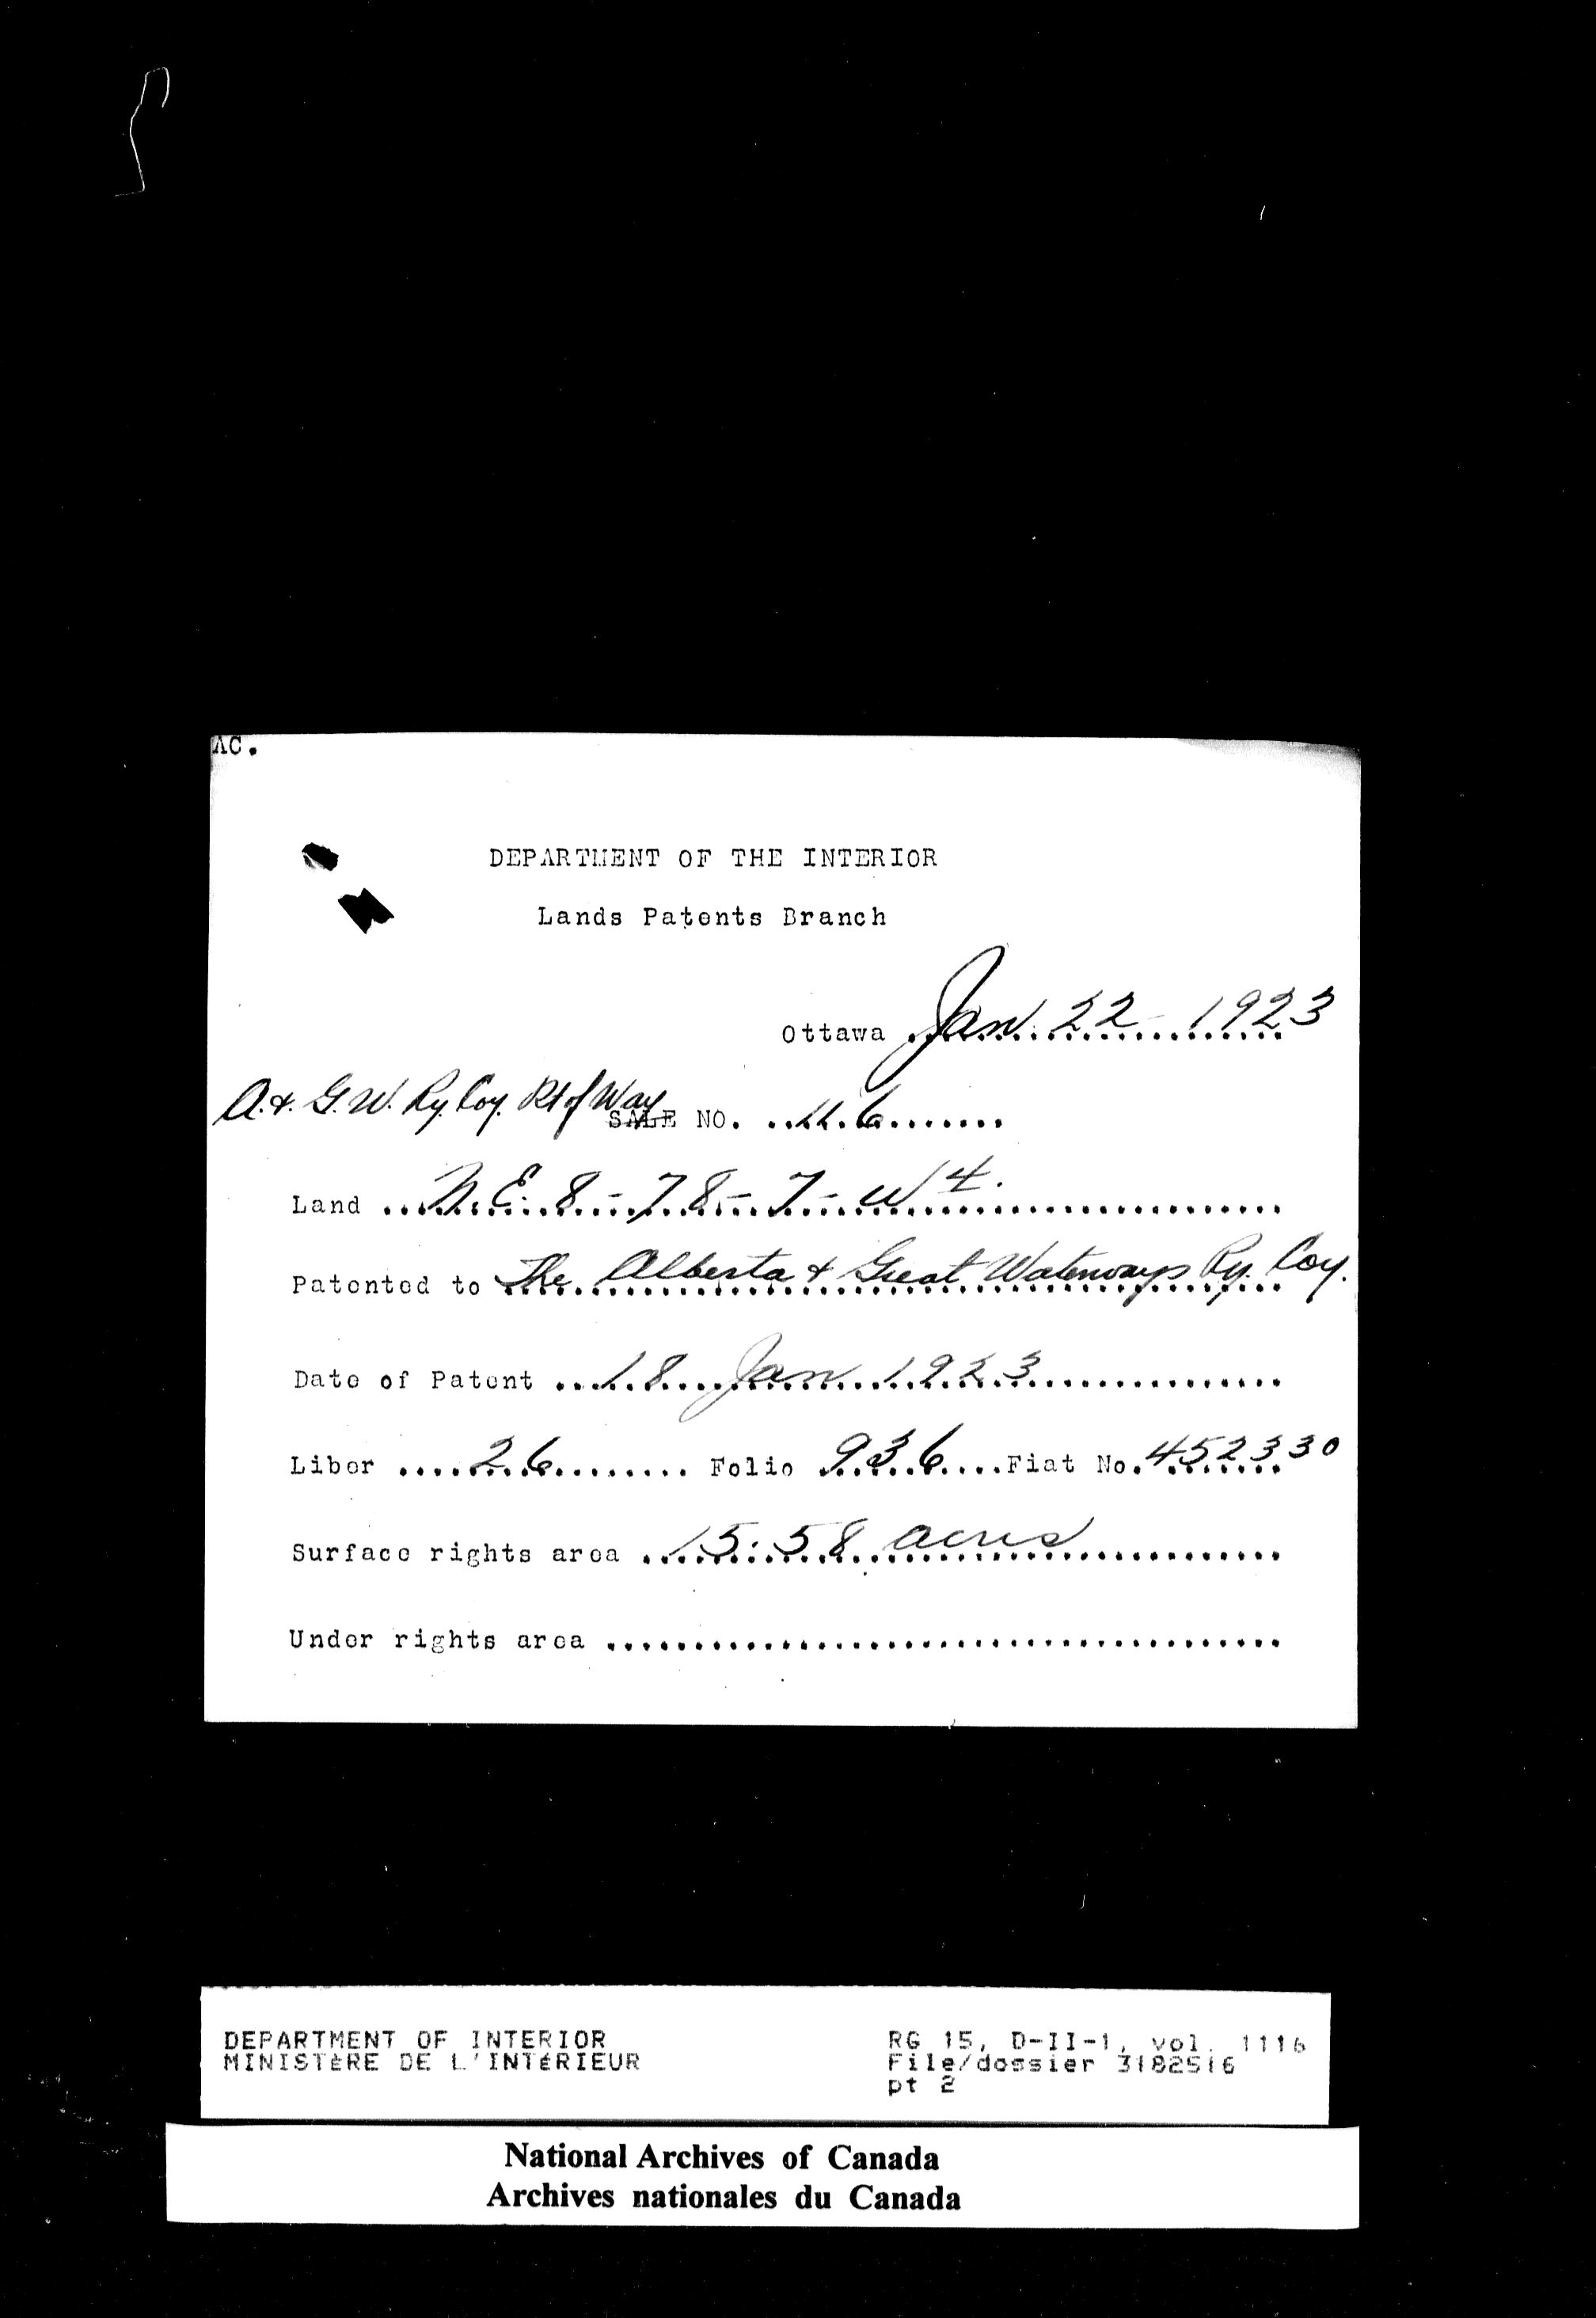 AC.
DEPARTMENT OF THE INTERIOR
Lands Patents Branch
Ottawa Jan. 22 - 1923
A. & G. W. Ry. Coy. Rt of Way SALE NO. 116
Land N. E. 8 - 78 - 7 - W 4.
Patented to The Alberta & Great Waterways Ry. Coy.
Date of Patent 18 Jan 1923
Liber 26 Folio 936 Fiat No. 452330
Surface rights area 15.58 acres
Under rights area
DEPARTMENT OF INTERIOR
MINISTÈRE DE L'INTÉRIEUR
RG 15, D-II-1, vol. 1116
File/dossier 3182516
pt 2
National Archives of Canada
Archives nationales du Canada